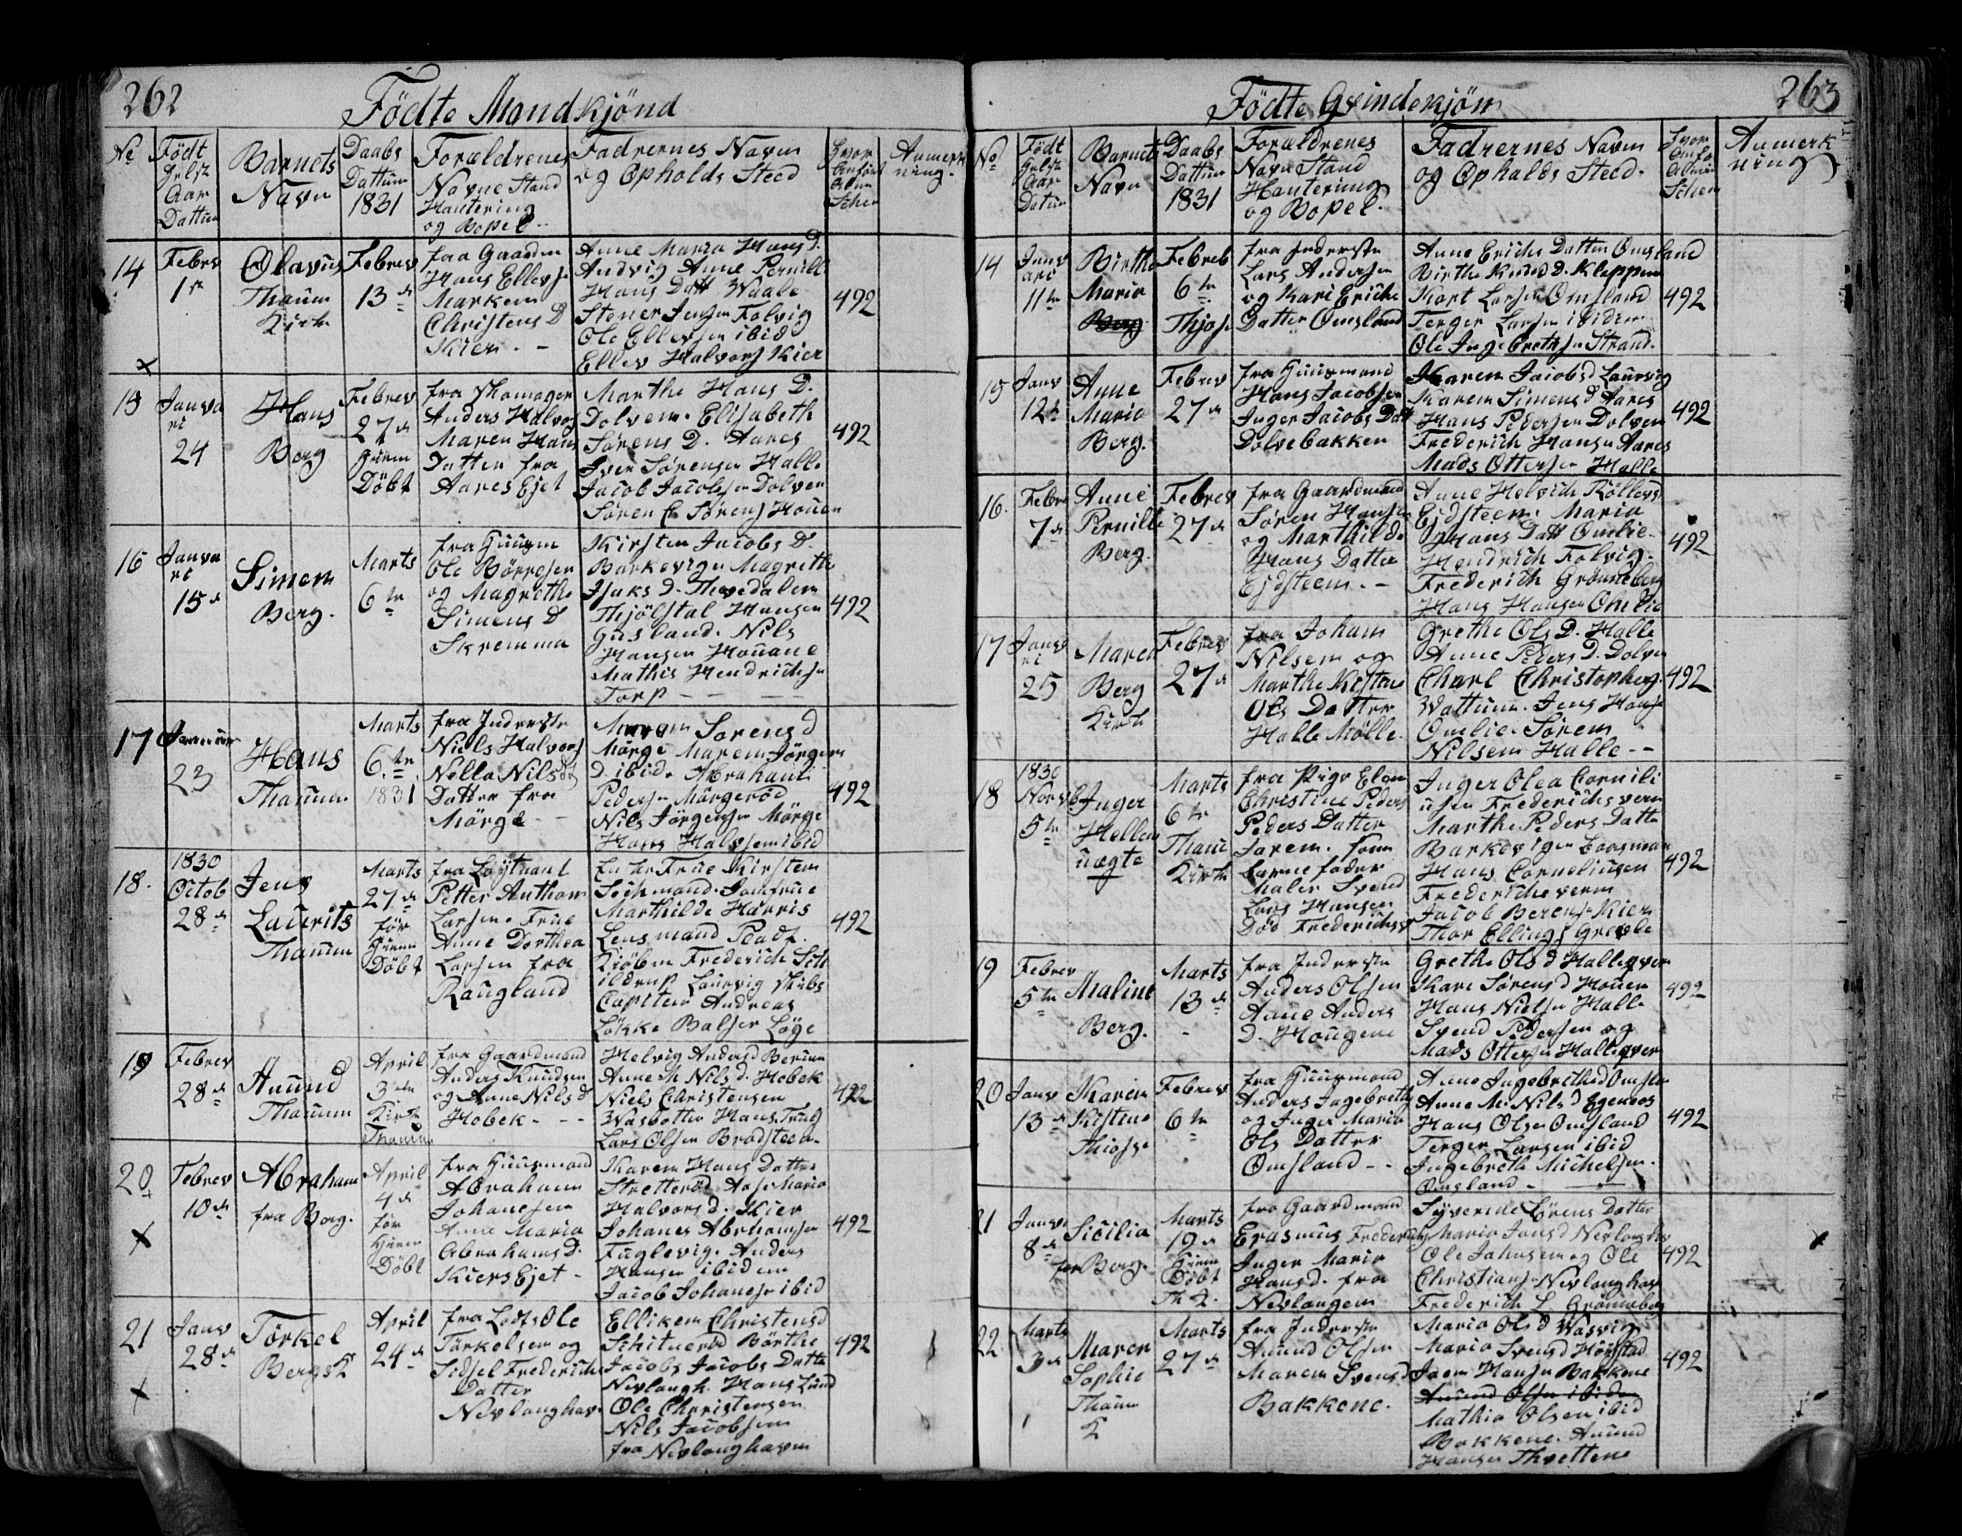 262
Födte Mandkjönd
No
Födt
Aar
Dattum
Barnets
Navn
Daabs
Dattum
1831
Forældrenes
Navne Stand
Hantering
og Bopel
Fadrernes Navn
og Opholds Sted
Anmerk
ning.
14
Febrv
1
Olavus
Thaum
Kirke
Febrev
13
fra Gaarden
Hans Ellevs
Maren
Christens D
Kier. -
Anne Maria Hans D.
Andvig Anne Pernille
Hans Datt Waale
Stener Jensen Folvig
Ole Ellevsen ibid
Ellev Halvors Kier
492
15
Janva
ri
24
Hans
Berg
Febrev
27
hiem
Döbt
fra
Anders Halvors
Maren Hans
Datter fra
Aares Ejet
Marthe Hans D.
Dolven. Elisabeth
Sörens D. Aares
Iver Sörensen Halle
Jacob Jacobsen Dolven
Sören Sörens Houen
492
16
Janva
ri
15
Simen
Berg.
Marts
6te
fra Huusm
Ole Börresen
og Magrethe
Simens D
Skremma
Kirsten Jacobs D.
Barkevigen Magrethe
Isaks D. Thvedalen
Thjölstal Hansen
Gusland. Nils
Hansen Houane
Mathis Hendrichsen
Torp - - -
492
17
Januar
23
Hans
Thaum
Marts
6te
1831
fra Inderste
Niels Halvors
Nella Nils
Datter fra
Mörge
Maren Sörens d
Mörge Maren Jörgens
D. ibid. Abraham
Pedersen Mörgeröd
Nils Jörgensen Mörge
Hans Halvsen ibid
492
18.
1830
Octob
28
Jens
Laurits
Thaum
Marts
27
för
hiem
Döbt
fra Löytnant
Petter Anthon
Larsen. Frue
Anne Dorthea
Larsen fra
Raugland
Frue Kirsten
Sichmand. Jomfrue
Marthilde Harris
Lensmand
Kiöbm Frederich Sch
ildrup Laurvig Skibs
Capitein Andreas
Lökke Balser Löge
492
19
Febrev
28
Anund
Thaum
April
3
Kirke
Thaum
fra Gaardmand
Anders Knudsen
og Anne Nils d
Hobek - - -
Helvig Anders d
Anne M. Nils d. Hobek
Niels Christensen
Hans
Lars Olsen Bradsteen
492
20
Febrev
10
Abraham
fra Berg.
April
4
för
hiem
Döbt
fra Huusmand
Abraham
Johanesen
Anne Maria
Abrahams D.
Kiers Ejet -
Karen Hans Datter
Stretteröd Maria
Halvors d. Kier
Johanes Abrhamsen
Fuglevig. Anders
Hansen ibidem
Jacob Johanesen ibid
492
21
Janv
28
Törkel
Bergs K
April
24
fra Lods Ole
Törkelsen og
Sidsel Frederichs
Datter
Nevlonghav
Elliken Christens d
Börthe
Jacobs Jacobs Datte
Nevlangh. Hans Lund
Ole Christensen
Nils Jacobsen
fra Nevlonghavn
492
263
Födte Qvindekjön
No
Födt
Aar
Datum
Barnets
Navn
Daabs
Dattum
1831
Foraldrenes
Navn Stand
Hantering
og Bopel.
Fadrernes Navn
og Opholds Sted.
Anmerk
ning
14
Janv
ari
11te
Birthe
Maria
Berg
Febreb
6te
Thjose
fra Inderste
Lars Andersen
og Kari Erichs
Datter Omsland
Anne Erichs Datter Omsland
Birthe Knud D. Kleppen
Kort Larsen Omsland
Terger Larsen ibidem
Ole Ingebrethsen Strand.
492
15
Janv
12
Anne
Maria
Berg.
Febrev
27
fra Huusmand
Hans Jacobsen
Inger Jacobs Datt
Dolvebakken
Karen Jacobs d Laurvig
Karen Simens d Aares
Hans Pedersen Dolven
Frederich Hansen Aares
Mads Ottersen Halle
492
16.
Febr
7
Anne
Pernille
Berg.
Febrev
27
fra Gaardmand
Sören Hansen
og Marthilde
Hans Datter
Ejdsteen. -
Anne Helvich
Ejdsteen. Maria
Hans Datt Omlie.
Hendrich Folvig.
Frederich Grönneberg
Hans Hansen Omlie
492
17
Janv
ri
25
Maren
Berg
Kirke
Febrev
27
fra Johan
Nilsen og
Marthe Kistine
Ols Datter
Halle Mölle
Grethe Ols D. Halle
Anne Peders D. Dolven
Charl Christophers.
Jens Hans
Omlie. Sören
Nilsen Halle - -
492
18
1830
Novb
5te
Inger
Hellene
uægte
Marts
6te
Thaue
Kirke
fra Pige Elen
Christine Peders
Peders Datter
som
barne fader
Maler Svend
Lars Hansen
Död Frederichsv
Inger Olea Cornili
usen Frederichsvern
Marthe Peders Datte
Barkevigen
Hans Corneliusen
Fredericheverm
Jacob Berens Kier
Thor Ellings Grevle
492
19
Febrev
5te
Maline
Berg.
Marts
13
fra Inderste
Anders Olsen
Anne Anders
D. Hougene
Grethe Ols d Halleqver
Kare Sörens d Houen
Hans Nielsen Halle
Svend Pedersen og
Mads Ottersen Halleqver
492
20
Janv
13
Karen
Kistine
Thiosse
Febrev
6te
fra Huusmand
Anders Ingebreths
og Inger Maria
Ols Datter
Omsland - -
Anne Ingebreths d Omslan
Anne M. Nils d
Hans Olsen Omsland
Terger Larsen ibid
Ingebreth Michelsen.
Omsland -
492
21
Janv
8
Sicilia
fra Berg.
Marts
19
hiem
Döbt
fra Gaardmand
Erasmus Frederichs
Inger Marie
Hans d. fra
Nevlangen
Syverine Sörens Datter
Maria Jans d Nevlanghv
Ole Jahnsen og Ole
Christians Nevlonghav
Frederich L Grönneberg
492
22
Marts
3
Maren
Sophie
Thaum
K
Marts
27
fra Inderste
Anund Olsen
Maren Svens d
Bakkene.
Maria Ols d Wasvig
Maria Svens d
Joen Hansen Bakkene
Anund Olsen ibidem
Mathia Olsen ibid
Bakkene. Anund
Hansen Thvettene
492